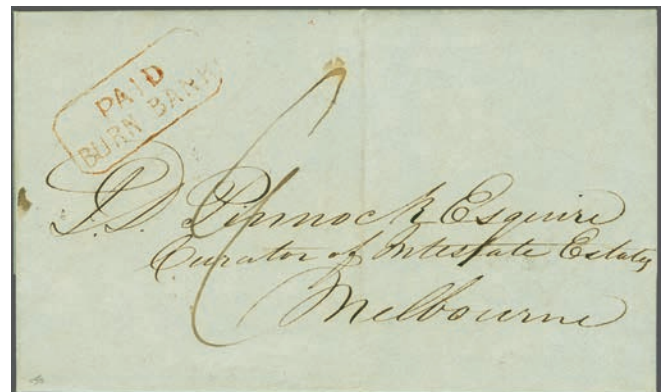 PAID
BURN BANK
6
J. D. Pinnock Esquire
Curator of Intestate Estates
Melbourne